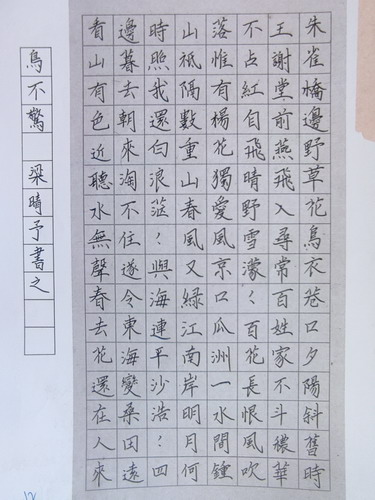 朱雀橋邊野草花烏衣巷口夕陽斜舊時
王謝堂前燕飛入尋常百姓家不斗穠華
不占紅自飛晴野雪濛々百花長恨風吹
落惟有楊花獨愛風京口瓜洲一水間鍾
山祇隔數重山春風又綠江南岸明月何
時照我還白浪茫々與海連平沙浩々四
邊暮去朝來淘不住遂令東海變桑田遠
看山有色近聽水無聲春去花還在人來
鳥不驚 梁晴予書之